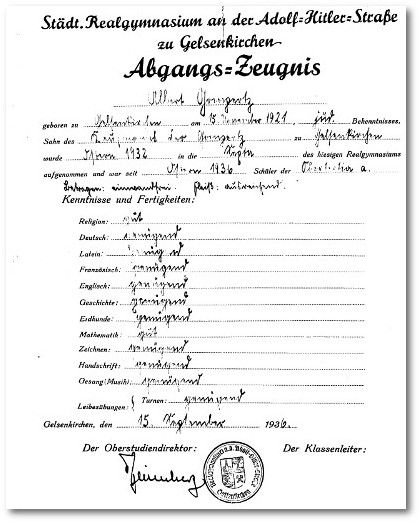 Städt. Realgymnasium an der Adolf=Hitler=Straße
zu Gelsenkirchen
Abgangs=Zeugnis
Albert Gompertz
geboren zu Gelsenkirchen am 15. November 1921, jüd. Bekenntnisses,
Sohn des Kaufmanns Leo Gompertz zu Gelsenkirchen
wurde Ostern 1932 in die Sexta des hiesigen Realgymnasiums
aufgenommen und war seit Ostern 1936 Schüler der Obertertia a.
Betragen: einwandfrei. Fleiß: ausreichend.
Kenntnisse und Fertigkeiten:
Religion: gut
Deutsch: genügend
Latein: genügend
Französisch: genügend
Englisch: genügend
Geschichte: genügend
Erdkunde: genügend
Mathematik: gut
Zeichnen: genügend
Handschrift: genügend
Gesang (Musik): genügend
Leibesübungen: { Turnen: genügend
Gelsenkirchen, den 15. September 1936.
Der Oberstudiendirektor: Der Klassenleiter: